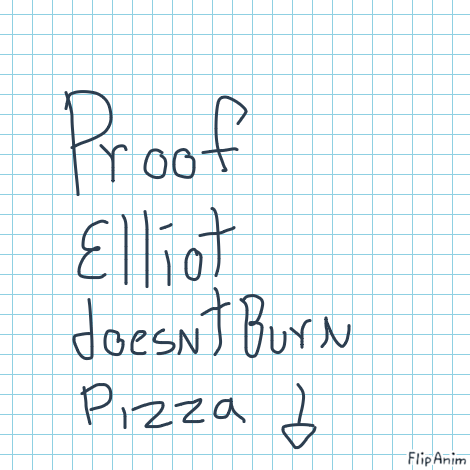 Proof
Elliot
doesnt Burn
Pizza
FlipAnim